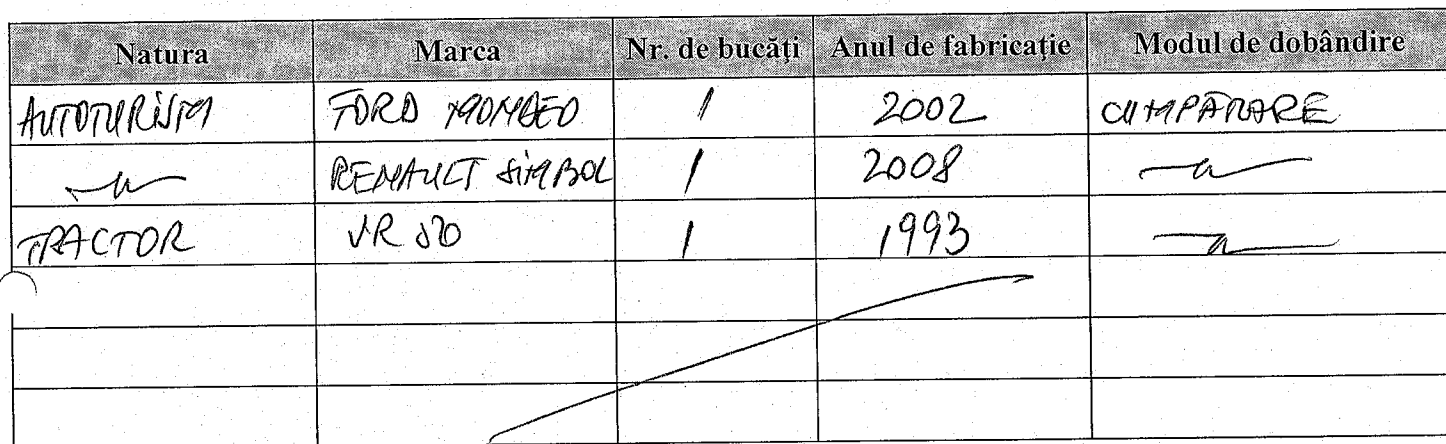 Natura Marca Nr. de bucăți Anul de fabricație Modul de dobândire
AUTOTURISM FORD MONDEO 1 2002 CUMPĂRARE
—"— RENAULT SIMBOL 1 2008 —"—
TRACTOR 1 1993 —"—